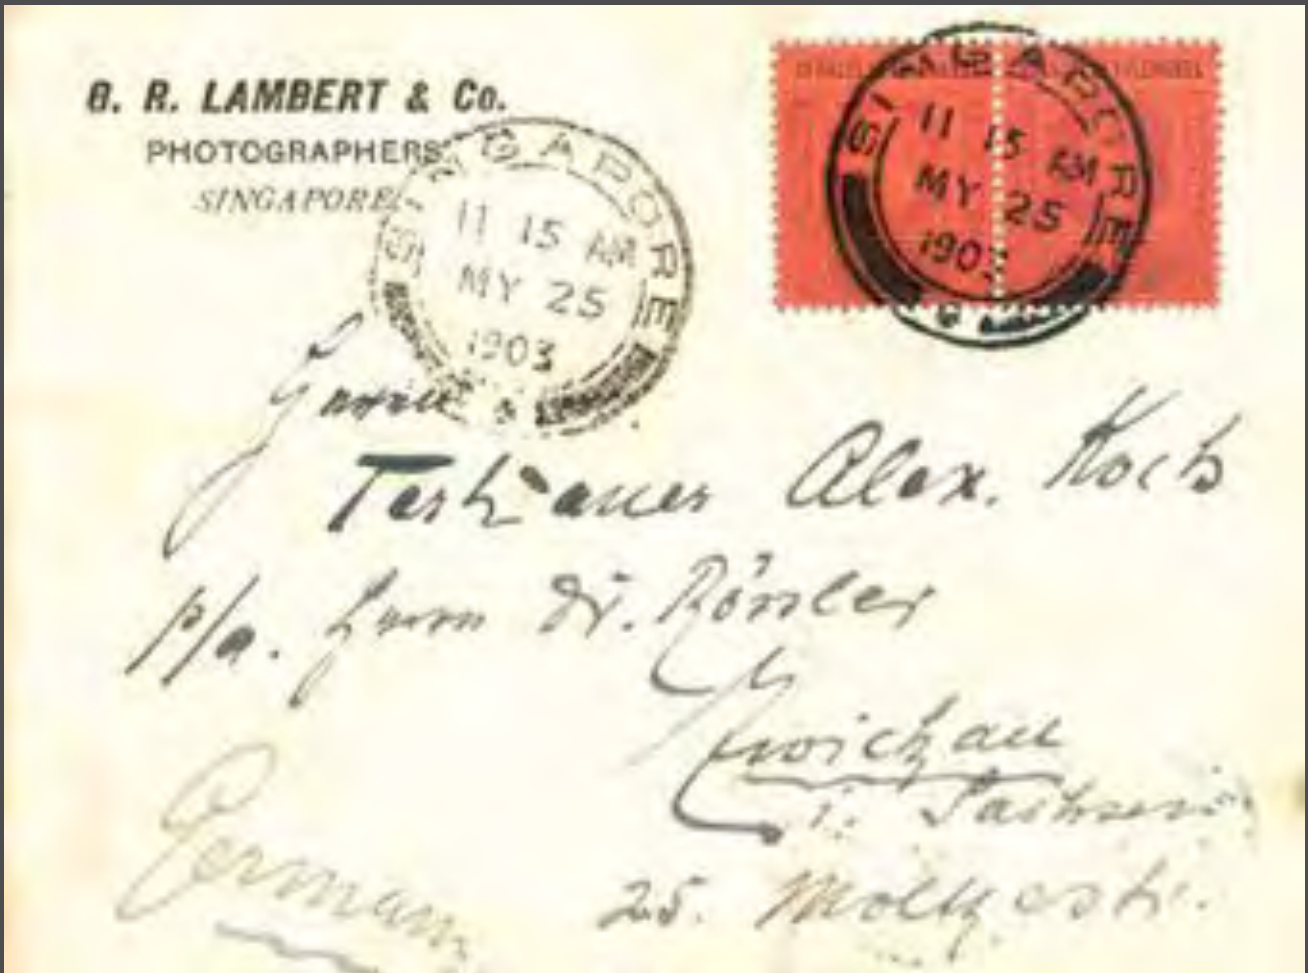 G. R. LAMBERT & Co.
PHOTOGRAPHERS
SINGAPORE
SINGAPORE
11 15 AM
MY 25
1903
SINGAPORE
11 15 AM
MY 25
1903
Alex. Koch
p/a. Herrn Dr. Rössler
Zwickau
i. Sachsen
25. Moltkestr.
Germany